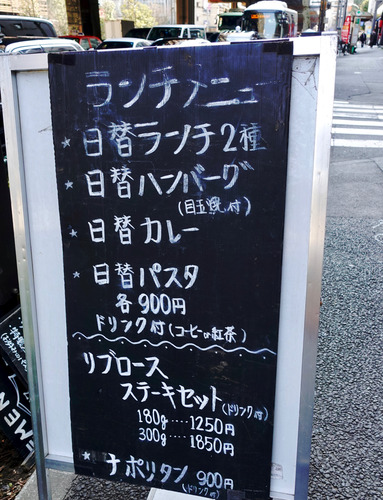 ランチメニュー
★日替ランチ2種
★日替ハンバーグ
(目玉焼付)
★日替カレー
★日替パスタ
各900円
ドリンク付(コーヒーor紅茶)
リブロース
ステーキセット(ドリンク付)
180g‥‥1250円
300g‥‥1850円
★ナポリタン 900円
(ドリンク付)